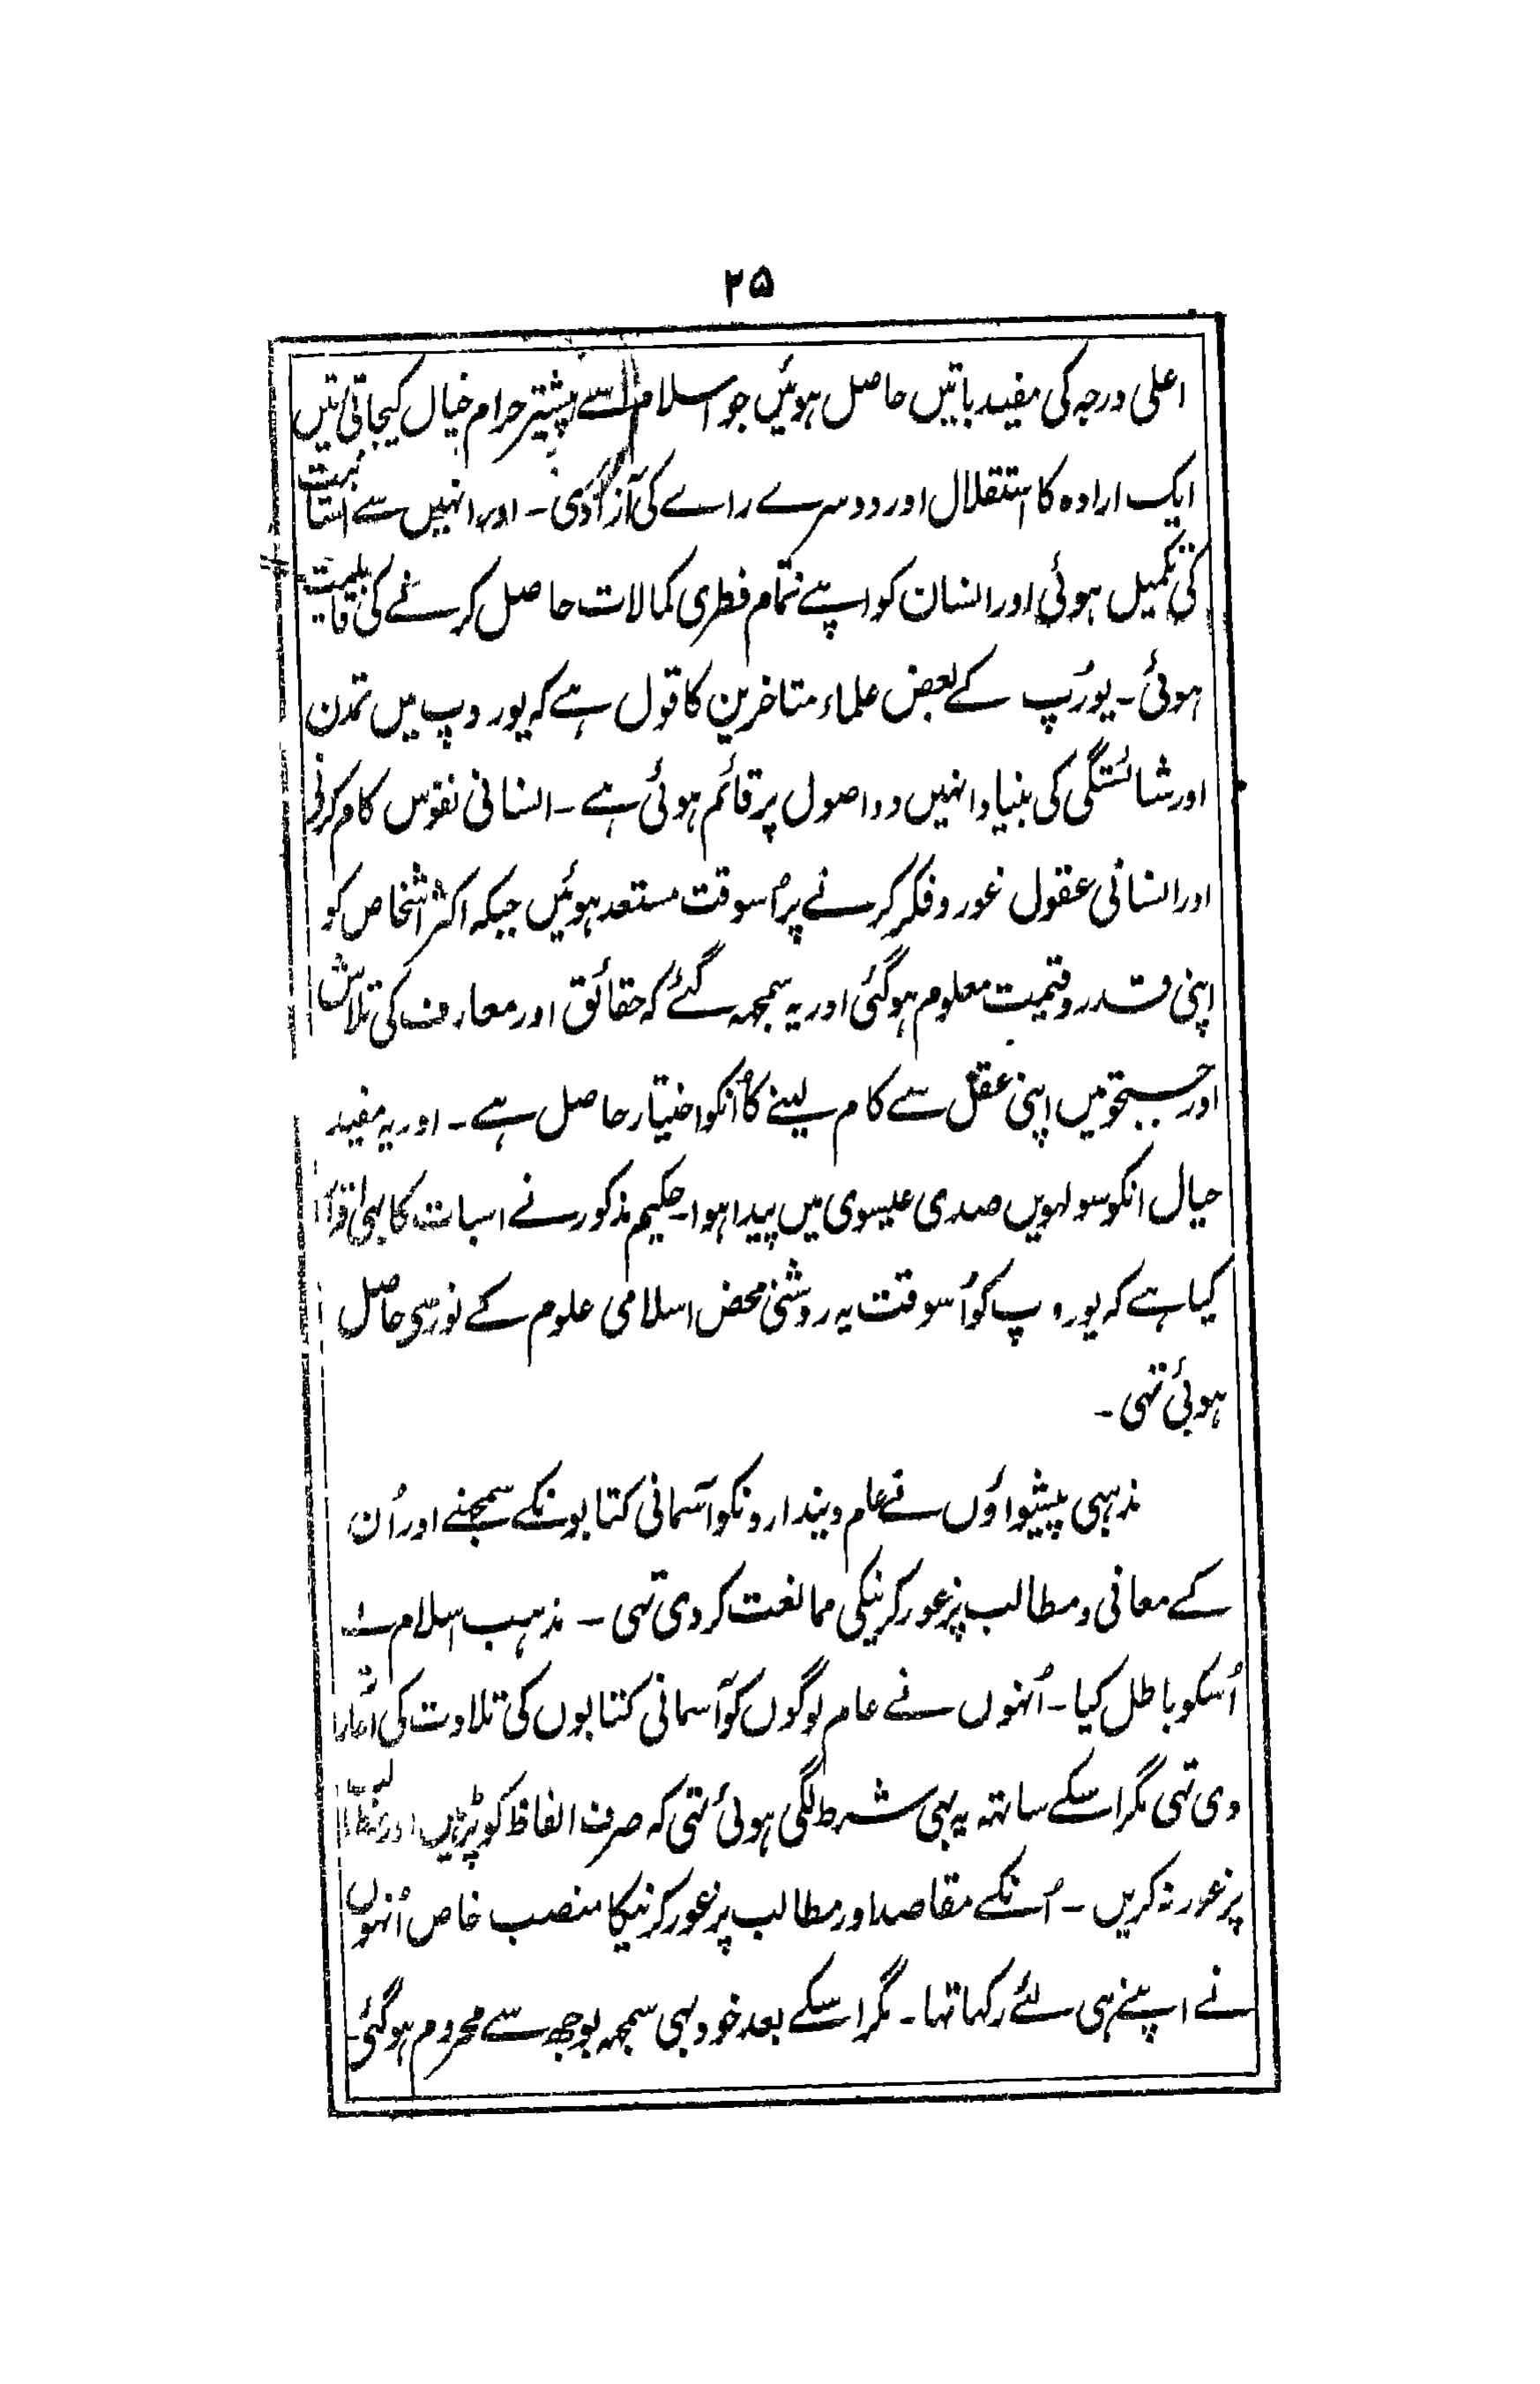 ۲۵
اعلی درجہ کی مفید باتیں حاصل ہوئیں جو اسلام سے پیشتر حرام خیال کیجاتی تہیں
ایک ارادہ کا استقلال اور دوسرے راے کی آزادی ۔ اور انہیں سے انسانیت
کی تکمیل ہوئی اور انسان کو اپنے تمام فطری کمالات حاصل کرنے کی قابلیت
ہوئی ۔ یورُپ کے بعض علماء متاخرین کا قول ہے کہ یوروپ میں تمدن
اور شائستگی کی بنیاد انہیں دو اصول پر قائم ہوئی ہے ۔ انسانی نفوس کام کرنے
اور انسانی عقول غور و فکر کرنے پر اُسوقت مستعد ہوئیں جبکہ اکثر اشخاص کو
اپنی قدر و قیمت معلوم ہو گئی اور یہ سمجہہ گئے کہ حقائق اور معارف کی تلاش
اور جستجو میں اپنی عقل سے کام لینے کا اُنکو اختیار حاصل ہے ۔ اور یہ مفید
خیال انکو سولہویں صدی عیسوی میں پیدا ہوا ۔ حکیم مذکور نے اسبات کا بہی اقرار
کیا ہے کہ یوروپ کو اُسوقت یہ روشنی محض اسلامی علوم کے نور سے حاصل
ہوئی تہی ۔
مذہبی پیشواؤں نے عام دیندارونکو آسمانی کتابونکے سمجہنے اور اُن
کے معانی و مطالب پر غور کرنیکی ممانعت کر دی تہی ۔ مذہب اسلام نے
اُسکو باطل کیا ۔ اُنہوں نے عام لوگوں کو آسمانی کتابوں کی تلاوت کی اجازت
دی تہی مگر اسکے ساتہہ یہ بہی شرط لگی ہوئی تہی کہ صرف الفاظ کو پڑہیں اور مطالب
پر غور نہ کریں ۔ اُنکے مقاصد اور مطالب پر غور کرنیکا منصب خاص اُنہوں
نے اپنے ہی لئے رکہا تہا ۔ مگر اسکے بعد خود بہی سمجہہ بوجھ سے محروم ہو گئی